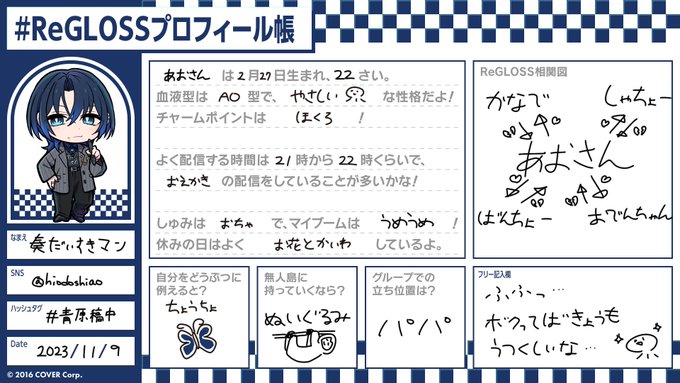 #ReGLOSSプロフィール帳
なまえ
奏だいすきマン
SNS
@hiodoshiao
ハッシュタグ
#青原稿中
Date
2023/11/9
© 2016 COVER Corp.
あおさん は2月27日生まれ、22さい。
血液型は AO 型で、やさしい な性格だよ!
チャームポイントは ほくろ !
よく配信する時間は21時から22時くらいで、
おえかき の配信をしていることが多いかな!
しゅみは おちゃ で、マイブームは うめうめ !
休みの日はよく お花とかいわ しているよ。
自分をどうぶつに
例えると?
ちょうちょ
無人島に
持っていくなら?
ぬいぐるみ
グループでの
立ち位置は?
パパ
ReGLOSS相関図
かなで
しゃちょー
あおさん
ばんちょー
おでんちゃん
フリー記入欄
ふふっ…
ボクってばきょうも
うつくしいな…